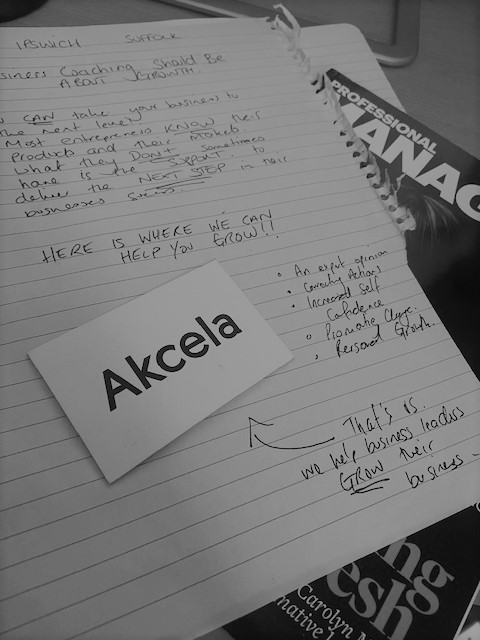 IPSWICH SUFFOLK
siness Coaching Should Be
ABOUT GROWTH.
CAN take your business to
the next level
Most entrepreneurs KNOW their
Products and their Market.
What they DON'T sometimes
have is the SUPPORT to
deliver the NEXT STEP in their
businesses
HERE IS WHERE WE CAN
HELP YOU GROW!!
• An expert opinion
• Correcting Actions
• Increased Self
Confidence
• Change.
• Personal Growth.
Akcela
That's us.
we help business leaders
GROW their
business -
PROFESSIONAL
MANAG
ng
esh
Carolyn M
mative l